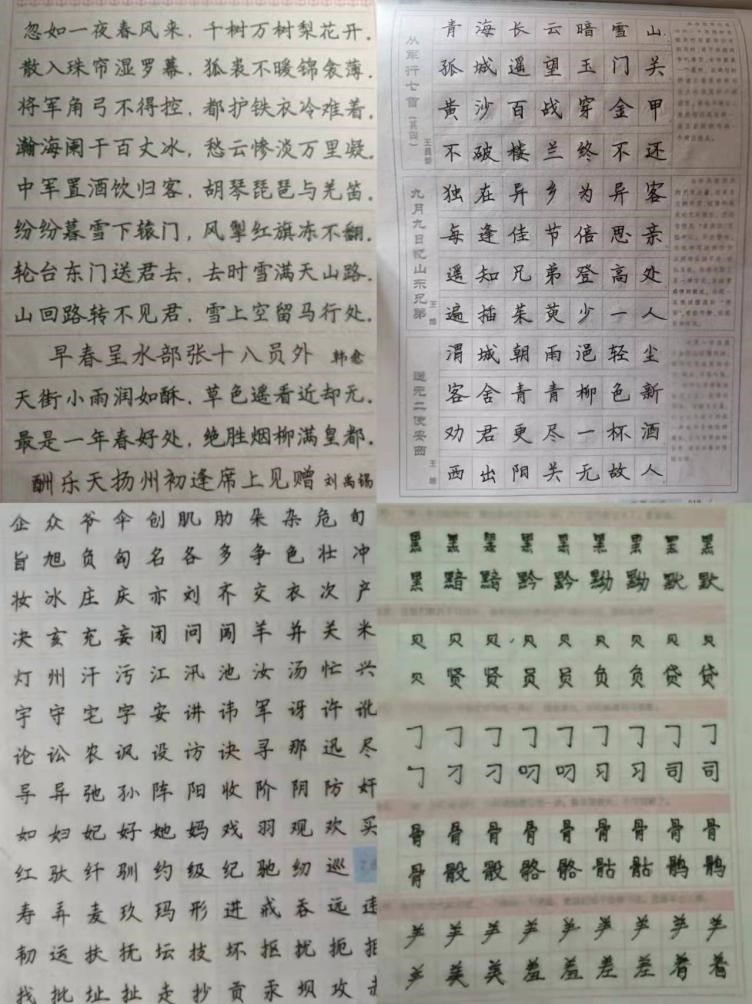 忽如一夜春风来，千树万树梨花开.
散入珠帘湿罗幕，狐裘不暖锦衾薄.
将军角弓不得控，都护铁衣冷难着.
瀚海阑干百丈冰，愁云惨淡万里凝.
中军置酒饮归客，胡琴琵琶与羌笛.
纷纷暮雪下辕门，风掣红旗冻不翻.
轮台东门送君去，去时雪满天山路.
山回路转不见君，雪上空留马行处.
早春呈水部张十八员外 韩愈
天街小雨润如酥，草色遥看近却无.
最是一年春好处，绝胜烟柳满皇都.
酬乐天扬州初逢席上见赠 刘禹锡
从军行七首（其四）
王昌龄
青海长云暗雪山
孤城遥望玉门关
黄沙百战穿金甲
不破楼兰终不还
九月九日忆山东兄弟
王维
独在异乡为异客
每逢佳节倍思亲
遥知兄弟登高处
遍插茱萸少一人
送元二使安西
王维
渭城朝雨浥轻尘
客舍青青柳色新
劝君更尽一杯酒
西出阳关无故人
企众爷伞创肌肋朵杂危旬
旨旭负匈名各多争色壮冲
妆冰庄庆亦刘齐交衣次产
决玄充妄闭问闯羊并关米
灯州汗污江汛池汝汤忙兴
宇守宅字安讲讳军讶许讹
论讼农讽设访诀寻那迅尽
导异弛孙阵阳收阶阴防奸
如妇妃好她妈戏羽观欢买
红驮纤驯约级纪驰纫巡
寿弄麦玖玛形进戒吞远违
韧运扶抚坛技坏抠扰扼拒
找批址扯走抄贡汞坝攻赤
黑黑黑黑黑黑黑黑黑
黑黯黯黔黔黝黝默默
贝贝贝贝贝贝贝贝贝
贝贤贤员员负负贷贷
刁刁刁刁刁刁刁刁
刁刁叼叼习习司司
骨骨骨骨骨骨骨骨骨
骨骰骰骼骼骷骷鹘鹘
羊美美羞羞差差着着